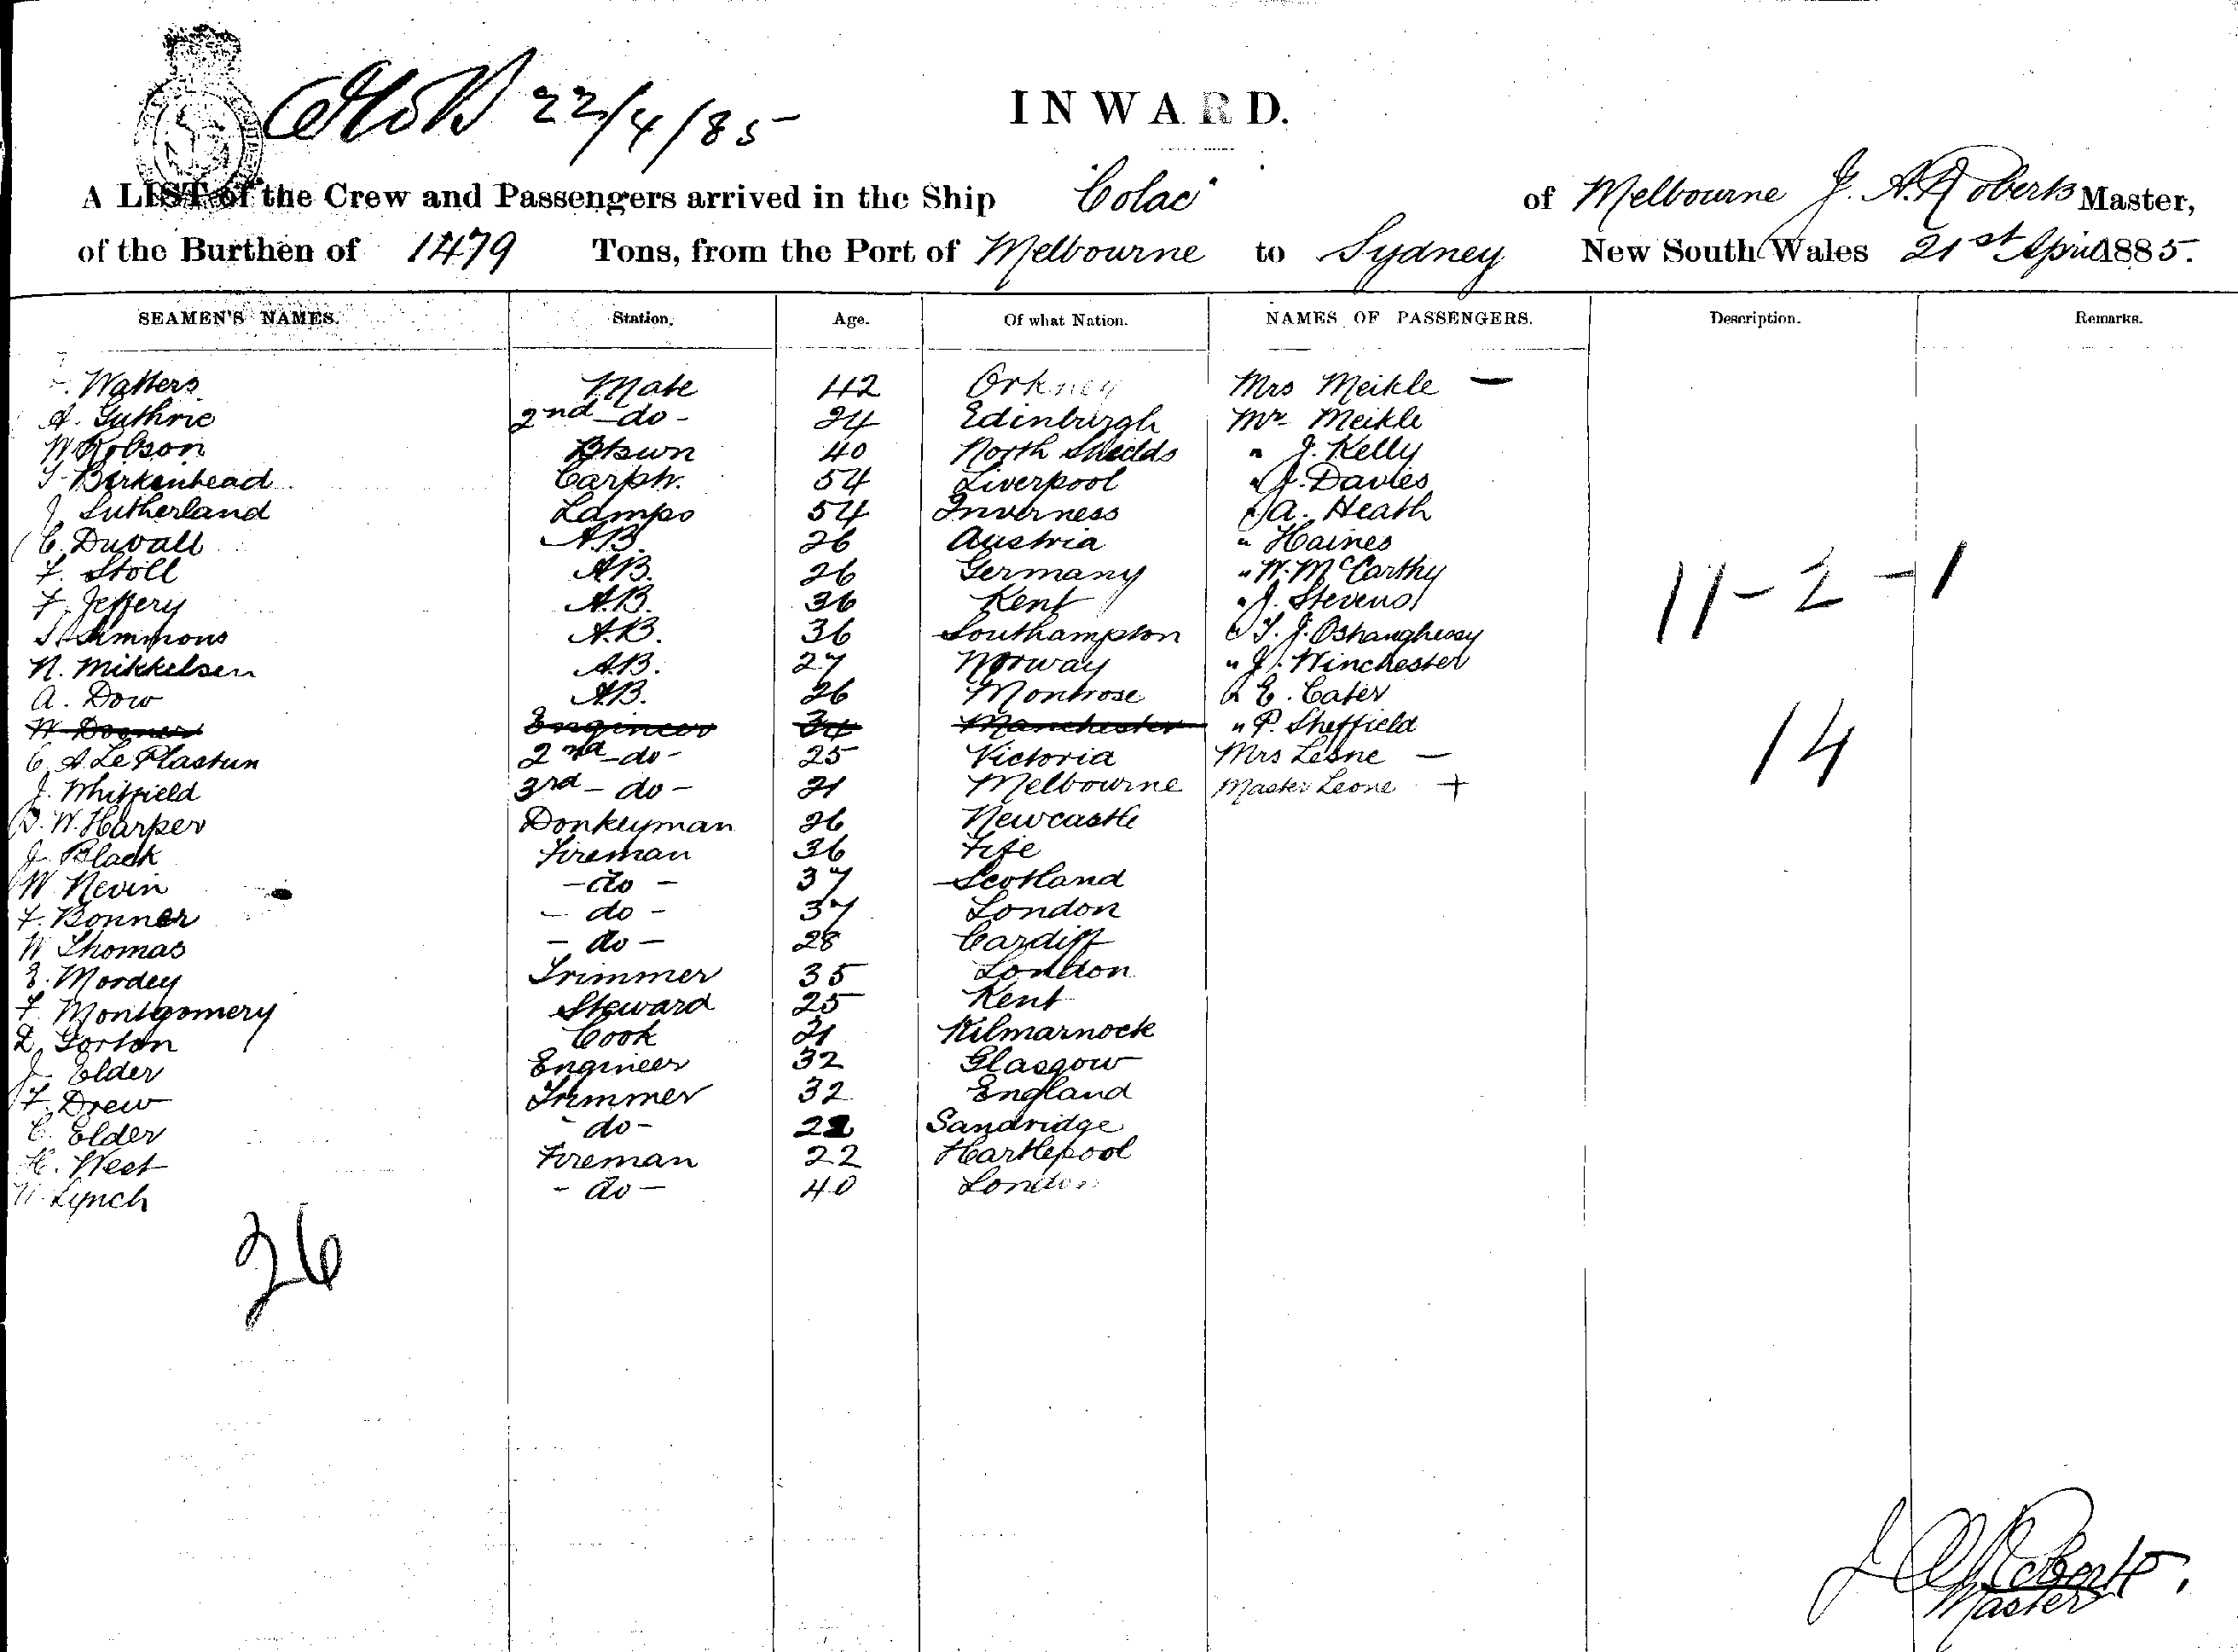 22/4/85
INWARD.
A LIST of the Crew and Passengers arrived in the Ship "Colac" of Melbourne J. A. Roberts Master,
of the Burthen of 1479 Tons, from the Port of Melbourne to Sydney New South Wales 21st April 1885.
SEAMEN'S NAMES. Station. Age. Of what Nation. NAMES OF PASSENGERS. Description. Remarks.
Watters Mate 42 Orkney Mrs Meikle —
A. Guthrie 2nd - do - 24 Edinburgh Mr Meikle
W Robson Btswn 40 North Shields " J. Kelly
T. Birkenhead Carptr. 54 Liverpool " J. Davies
J. Sutherland Lamps 54 Inverness " A. Heath
C. Duvall A.B. 26 Austria " Haines
F. Stoll A.B. 26 Germany " W. McCarthy
F. Jeffery A.B. 36 Kent " J. Stevens
Simmons A.B. 36 Southampton " T. J. Oshanghessy
N. Mikkelsen A.B. 27 Norway " J. Winchester
A. Dow A.B. 26 Montrose " E. Cater
W Engineer 34 Manchester " P. Sheffield
C. A. Le Plastun 2nd - do - 25 Victoria Mrs Leone —
J. Whitfield 3rd - do - 21 Melbourne Master Leone +
W. Harper Donkeyman 26 Newcastle
J. Black Fireman 36 Fife
W. Nevin - do - 37 Scotland
F. Bonner - do - 37 London
W Thomas - do - 28 Cardiff
E. Mordey Trimmer 35 London
F. Montgomery Steward 25 Kent
D. Gorton Cook 21 Kilmarnock
J. Elder Engineer 32 Glasgow
F. Drew Trimmer 32 England
C. Elder - do - 22 Sandridge
H. West Fireman 22 Hartlepool
Lynch - do - 40 London
11 - 2 - 1
14
26
J A Roberts.
Master